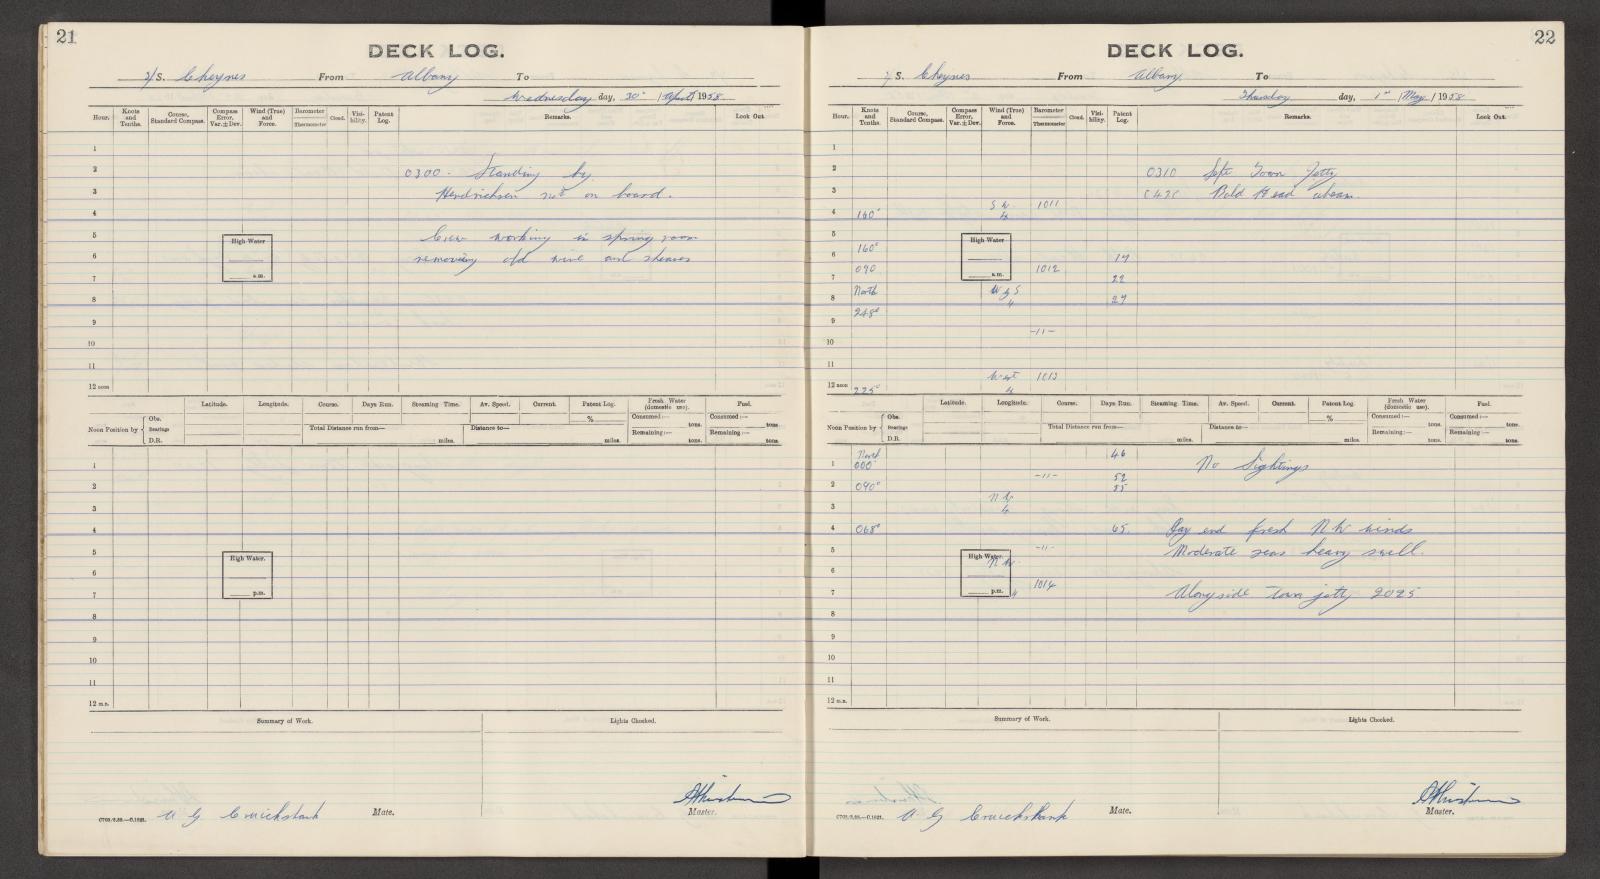 21
DECK LOG.
S. Cheynes From Albany To
Wednesday day, 30th / April / 1958
Hour. Knots and Tenths. Course, Standard Compass. Compass Error, Var. ± Dev. Wind (True) and Force. Barometer Thermometer Cloud. Visibility. Patent Log. Remarks. Look Out.
1
2 0300 - Standing by
3 Hendrichsen not on board.
4
5 Crew working in spring room
High Water
6 removing old wire and sheaves
a.m.
7
8
9
10
11
12 noon
Latitude. Longitude. Course. Days Run. Steaming Time. Av. Speed. Current. Patent Log. Fresh Water (domestic use). Fuel.
Noon Position by Obs. Bearings D.R. % Consumed:— tons. Consumed:— tons.
Total Distance run from— miles. Distance to— miles. Remaining:— tons. Remaining:— tons.
1
2
3
4
5
High Water.
6
p.m.
7
8
9
10
11
12 m.n.
Summary of Work. Lights Checked.
A G Cruickshank Mate. Master.
22
DECK LOG.
S. Cheynes From Albany To
Thursday day, 1st / May / 1958
Hour. Knots and Tenths. Course, Standard Compass. Compass Error, Var. ± Dev. Wind (True) and Force. Barometer Thermometer Cloud. Visibility. Patent Log. Remarks. Look Out.
1
2 0310 Left Town Jetty
3 0420 Bald Head abeam.
4 160° S W. 4 1011
5
High Water
6 160° 17
7 090 1012 22
a.m.
8 North W by S 4 27
9 248°
-11-
10
11
12 noon 225° West 4 1013
Latitude. Longitude. Course. Days Run. Steaming Time. Av. Speed. Current. Patent Log. Fresh Water (domestic use). Fuel.
Noon Position by Obs. Bearings D.R. % Consumed:— tons. Consumed:— tons.
Total Distance run from— miles. Distance to— miles. Remaining:— tons. Remaining:— tons.
North 46
1 000° No Sightings
2 090° -11- 52 55
3 N W 4
4 068° 65. Day end fresh N W winds
5 -11- Moderate seas heavy swell.
High Water. N W
6
1014
7 p.m. 4 Alongside town jetty 2025
8
9
10
11
12 m.n.
Summary of Work. Lights Checked.
A G Cruickshank Mate. Master.